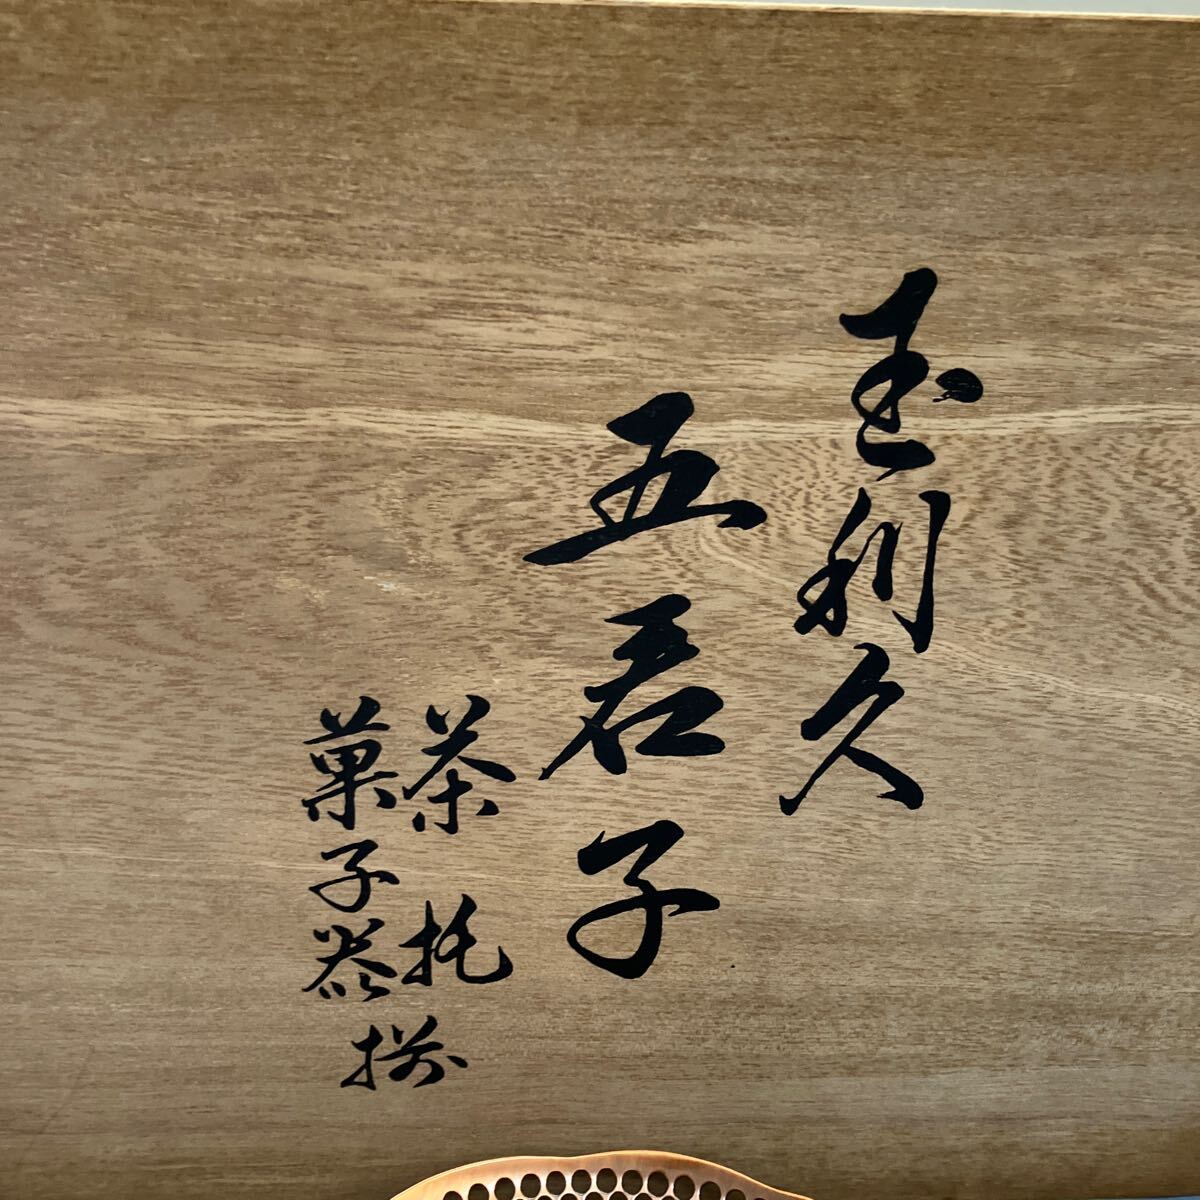 玉利久
五君子
茶托
菓子器
揃